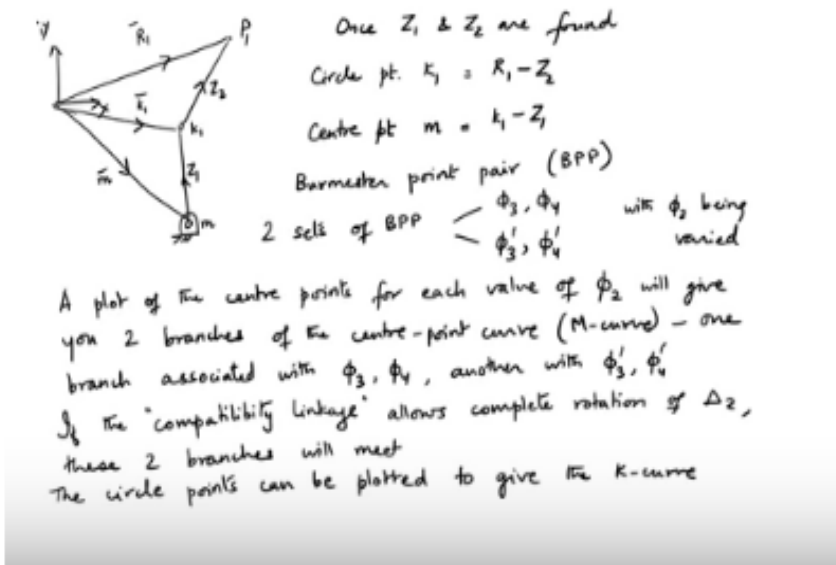 y
R̄₁
P₁
Once Z₁ & Z₂ are found
Z₂
Circle pt. k₁ = R₁ - Z₂
k̄₁
k₁
Centre pt m = k₁ - Z₁
m̄
Z₁
m
Burmester point pair (BPP)
2 sets of BPP
ϕ₃, ϕ₄
ϕ₃', ϕ₄'
with ϕ₂ being
varied
A plot of the centre points for each value of ϕ₂ will give
you 2 branches of the centre-point curve (M-curve) - one
branch associated with ϕ₃, ϕ₄, another with ϕ₃', ϕ₄'
If the "compatilibity linkage" allows complete rotation of Δ₂,
these 2 branches will meet
The circle points can be plotted to give the K-curve